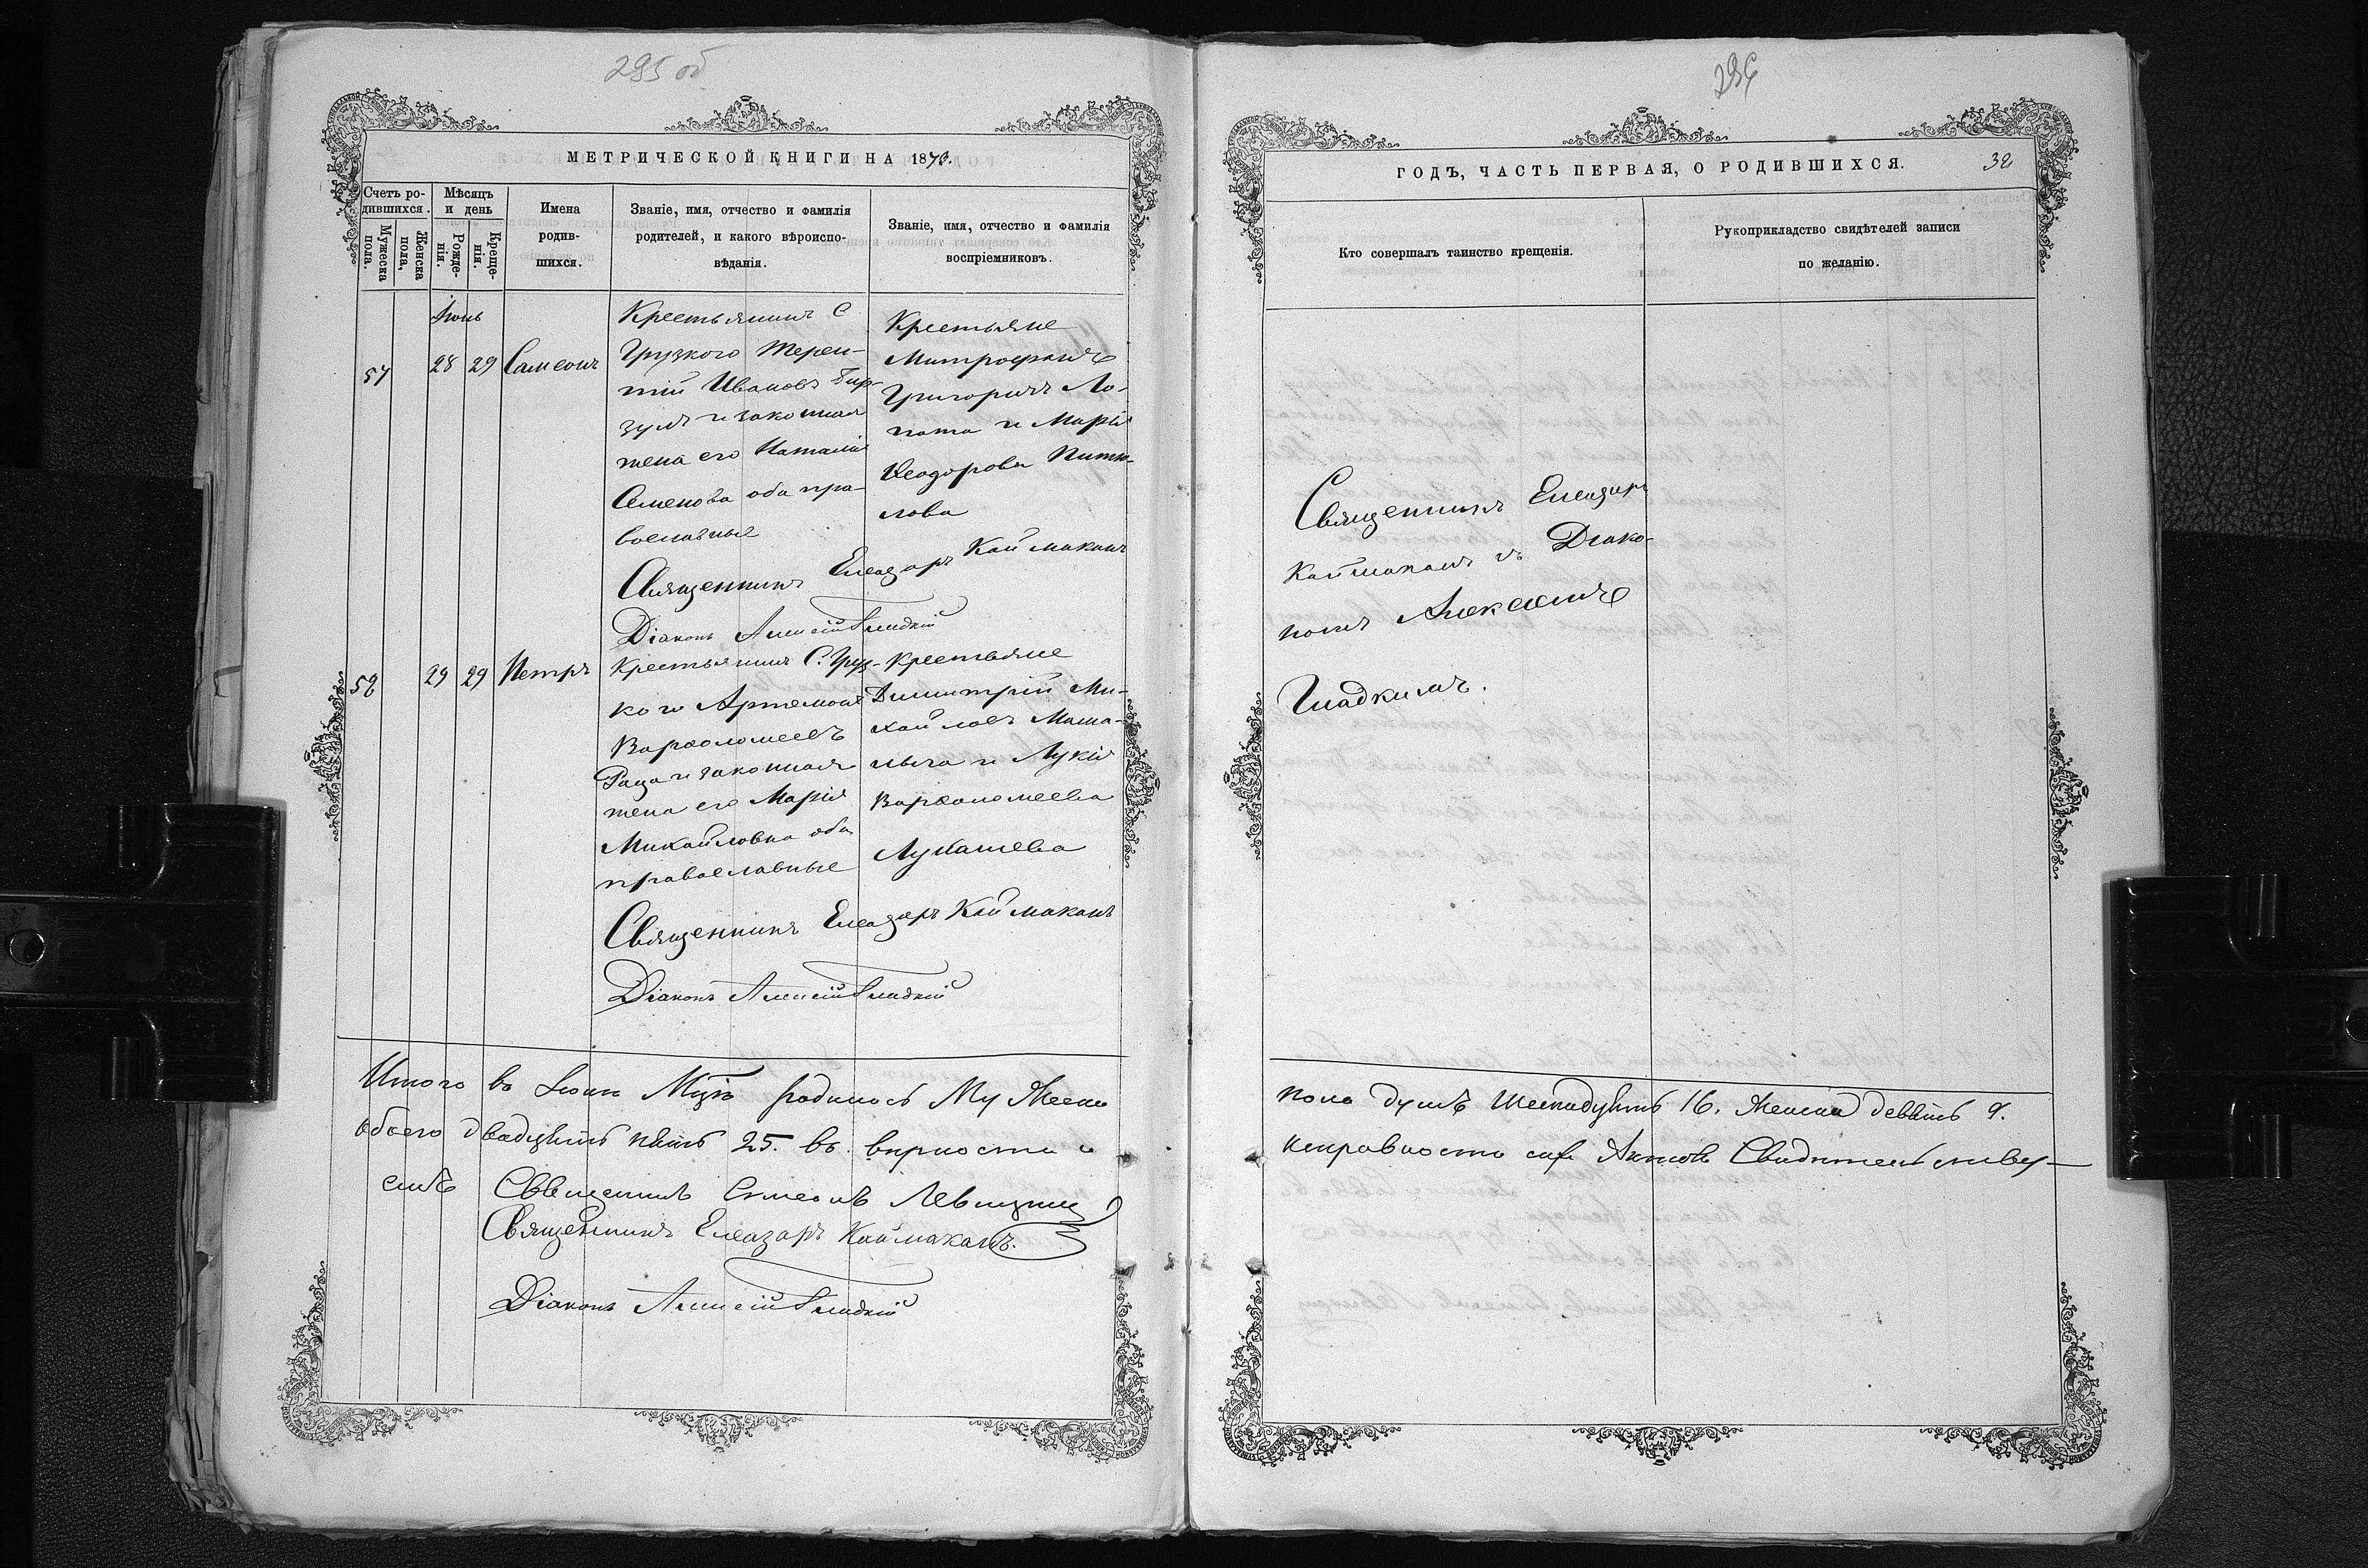 295 об
МЕТРИЧЕСКОЙ КНИГИ НА 1870.
Счетъ ро-
дившихся.
Мужеска
пола.
Женска
пола,
Мѣсяцъ
и день
Рожде-
нія.
Креще-
нія.
Имена
родив-
шихся.
Званіе, имя, отчество и фамилія
родителей, и какого вѣроиспо-
вѣданія.
Званіе, имя, отчество и фамилія
воспріемниковъ.
Іюнь
57
28
29
Самсонъ
Крестьянинъ С
Грузкого Терен-
тій Ивановъ
и законная
жена его Наталія
Семенова оба пра-
вославные
Крестьяне
Митрофанъ
Григоричъ Ло-
пата и Марія
Ѳеодорова
лова
Священникъ Елеазаръ Каймаканъ
Діаконъ Алексій Гладкій
58
29
29
Петръ
Крестьянинъ С. Груз-
кого Артемонъ
Варѳоломеевъ
Раца и законная
жена его Марія
Михайловна оба
православные
Крестьяне
Димитрій Ми-
хайловъ
и Лукія
Варѳоломеева
Лукашева
Священникъ Елеазаръ Каймаканъ
Діаконъ Алексій Гладкій
Итого въ Іюнѣ Мцѣ родилось Мужеска
обоего двадцать пять 25. въ вѣрности и
емъ Священникъ Симеонъ Левицкій
Священникъ Елеазаръ Каймаканъ.
Діаконъ Алексій Гладкій
296
ГОДЪ, ЧАСТЬ ПЕРВАЯ, О РОДИВШИХСЯ.
32
Кто совершалъ таинство крещенія.
Рукоприкладство свидѣтелей записи
по желанію.
Священникъ Елеазаръ
Каймаканъ съ Діако-
номъ Алексѣемъ
Гладкимъ.
пола душъ шеснадцать 16. Женска девять 9.
исправности сихъ Актовъ Свидѣтельству-